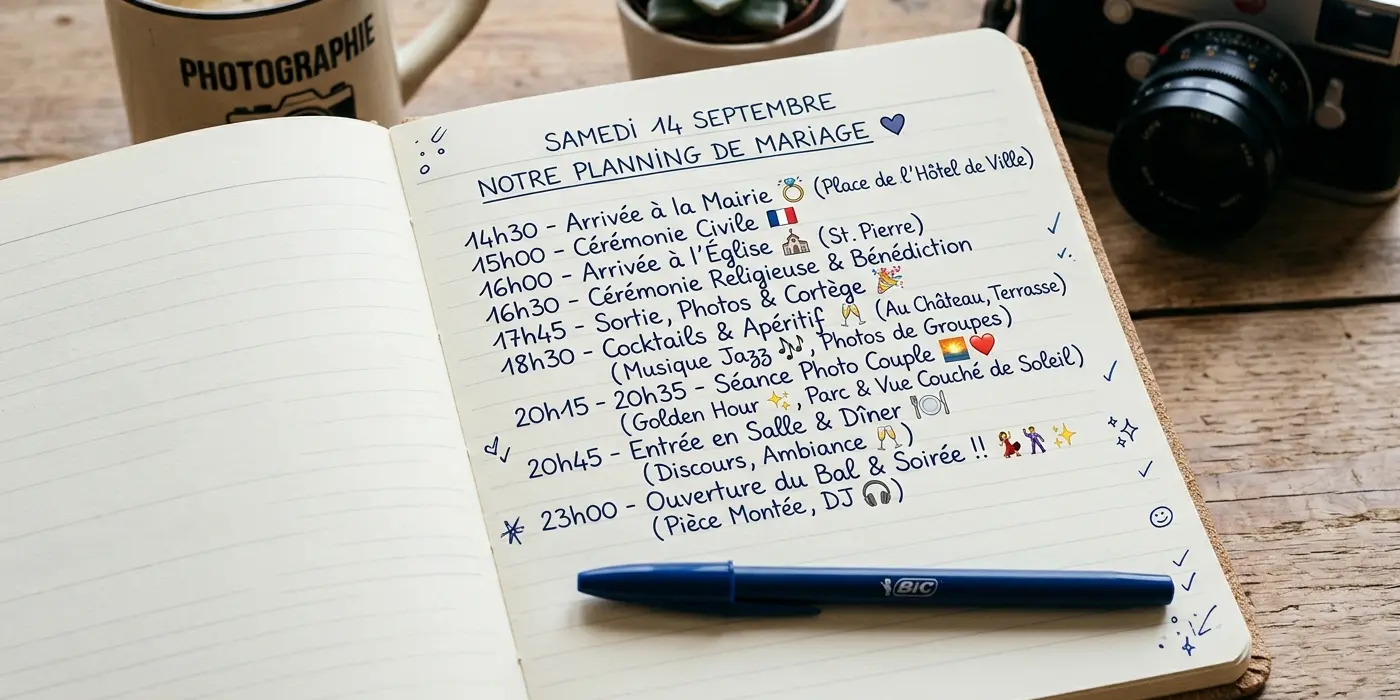 PHOTOGRAPHIE
SAMEDI 14 SEPTEMBRE
NOTRE PLANNING DE MARIAGE 💙
14h30 - Arrivée à la Mairie 💍 (Place de l'Hôtel de Ville)
15h00 - Cérémonie Civile 🇫🇷
16h00 - Arrivée à l'Église ⛪ (St. Pierre)
16h30 - Cérémonie Religieuse & Bénédiction
17h45 - Sortie, Photos & Cortège 🎉
18h30 - Cocktails & Apéritif 🥂 (Au Château, Terrasse)
(Musique Jazz 🎶, Photos de Groupes)
20h15 - 20h35 - Séance Photo Couple 🌅❤️
(Golden Hour ✨, Parc & Vue Couché de Soleil)
20h45 - Entrée en Salle & Dîner 🍽️
(Discours, Ambiance 🥂)
23h00 - Ouverture du Bal & Soirée !! 💃🕺✨
(Pièce Montée, DJ 🎧)
BIC